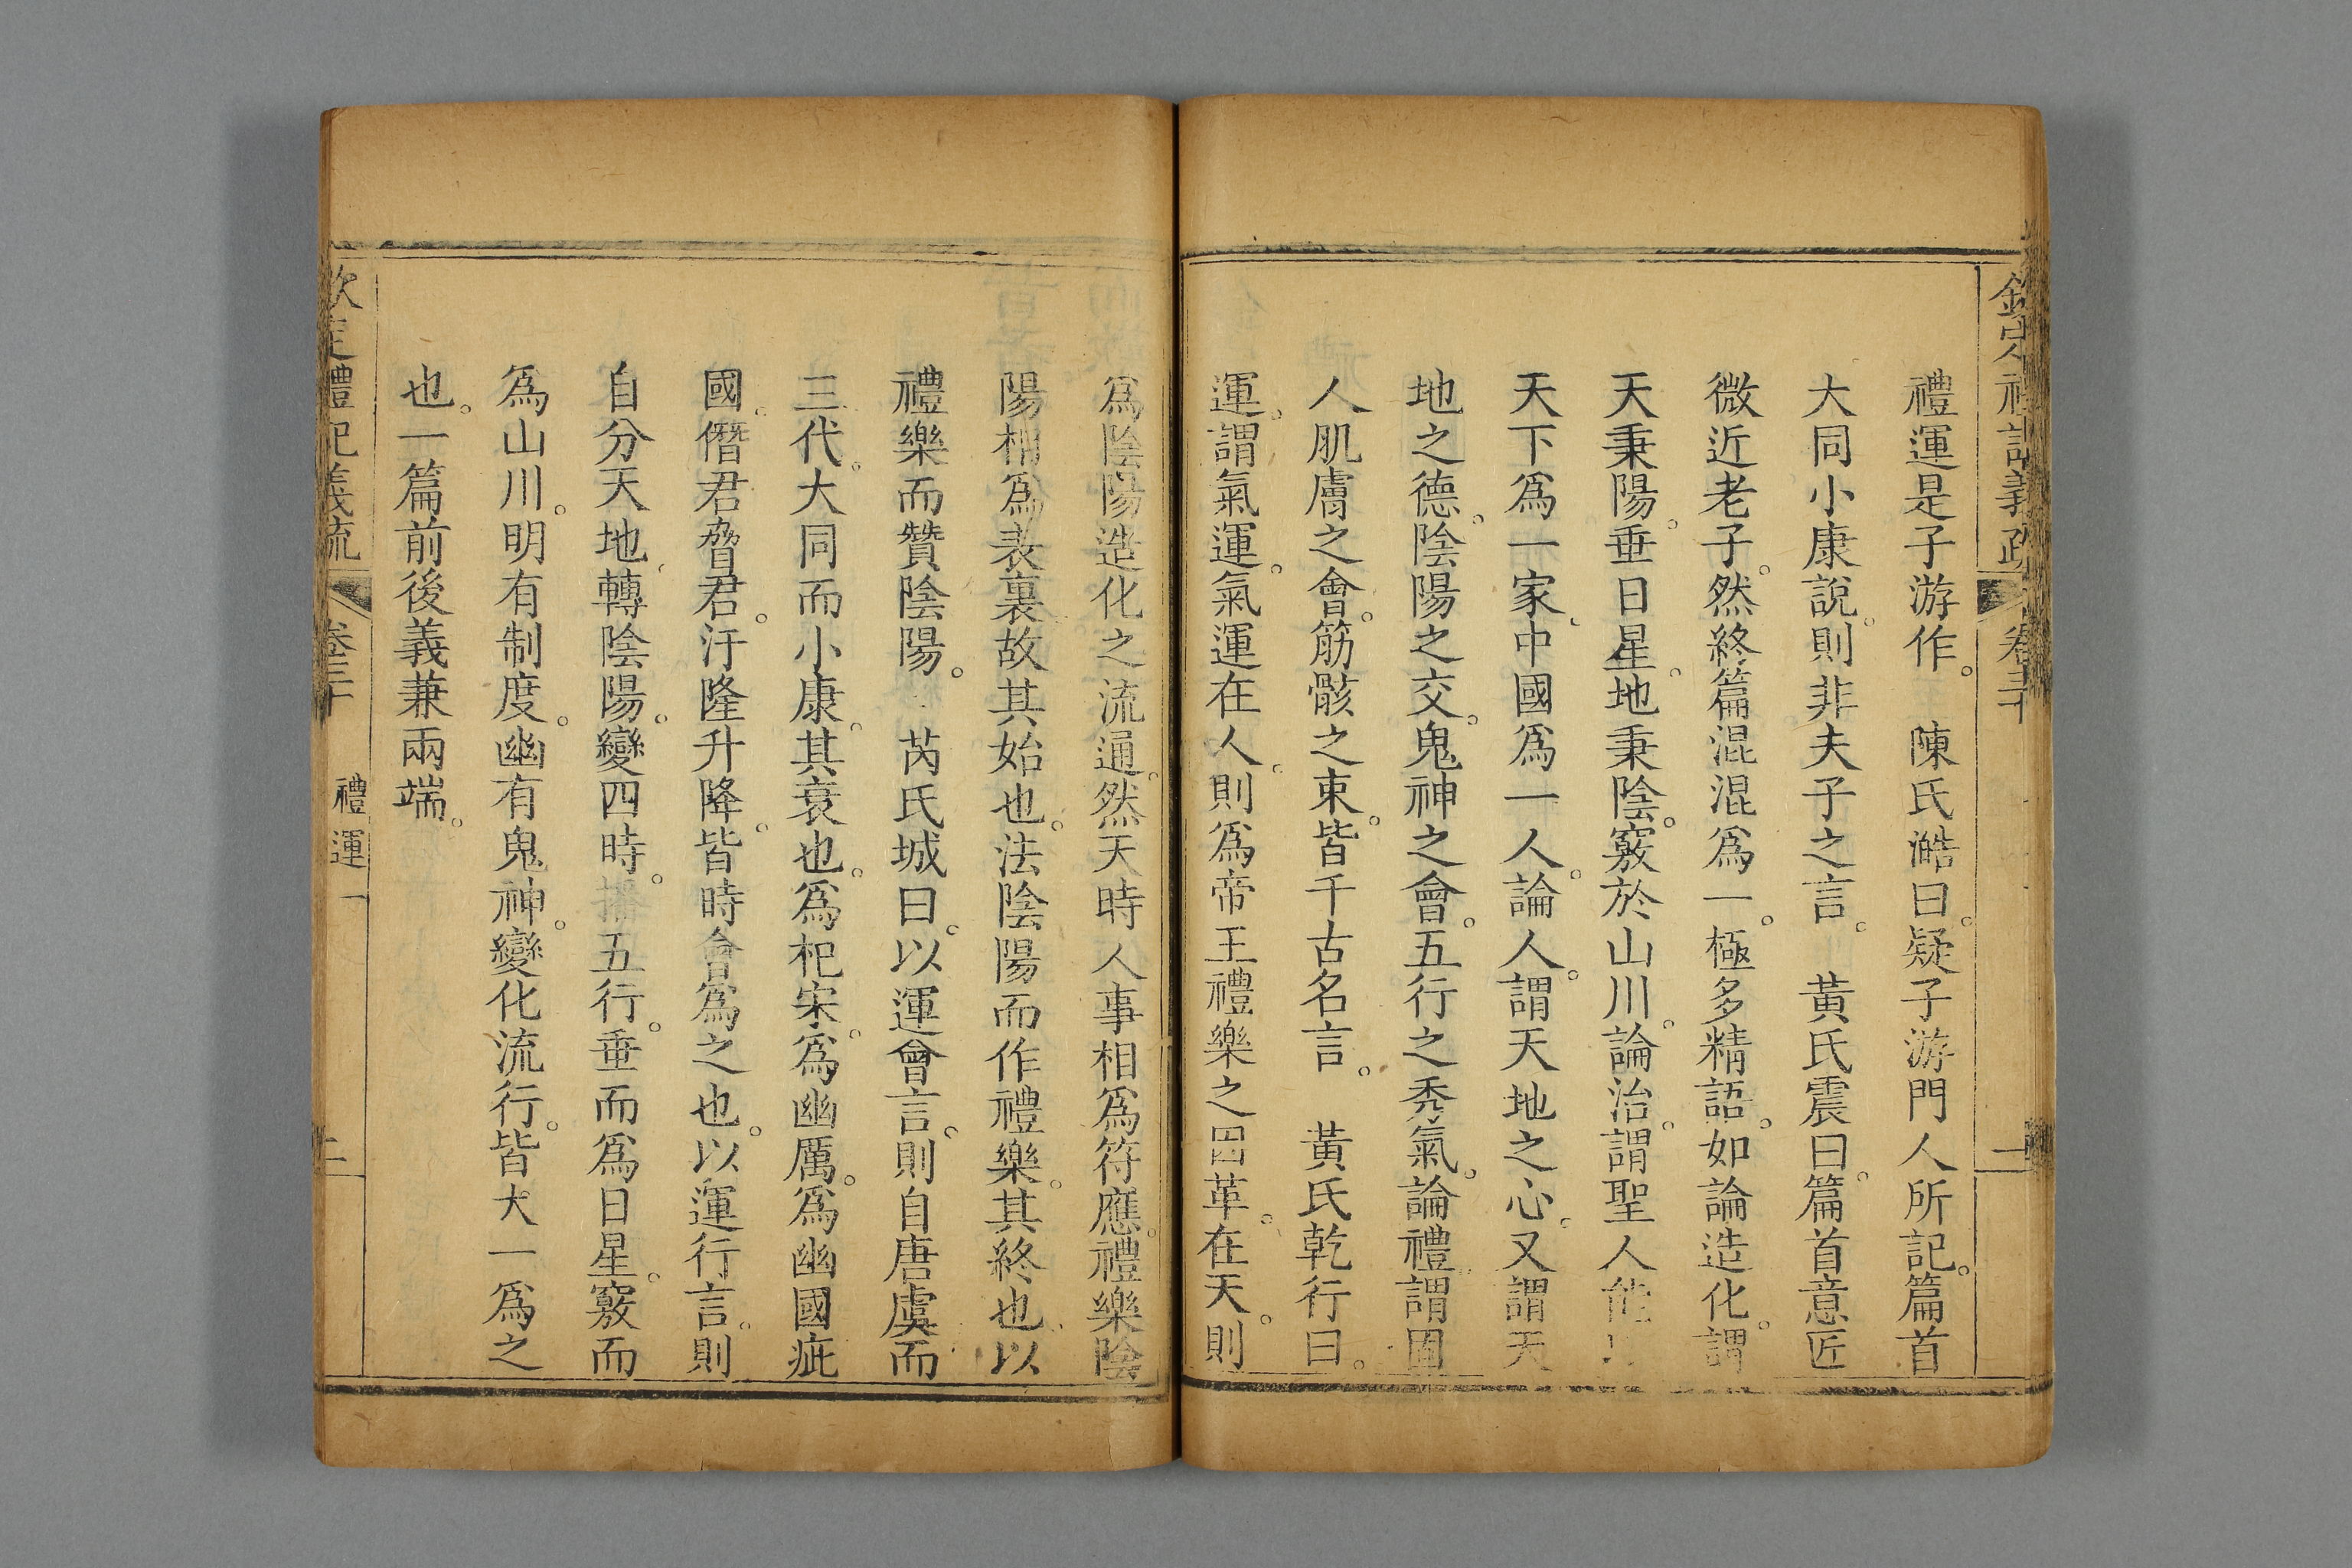 欽定禮記義疏 卷三十 一
禮運是子游作。 陳氏澔曰。疑子游門人所記。篇首
大同小康說。則非夫子之言。 黃氏震曰。篇首意匠
微近老子。然終篇混混爲一。極多精語。如論造化。謂
天秉陽。垂日星。地秉陰。竅於山川。論治。謂聖人能
天下爲一家、中國爲一人。論人。謂天地之心。又謂天
地之德。陰陽之交。鬼神之會。五行之秀氣。論禮。謂固
人肌膚之會。筋骸之束。皆千古名言。 黃氏乾行曰。
運。謂氣運。氣運在人。則爲帝王禮樂之因革。在天。則
爲陰陽造化之流通。然天時人事相爲符應。禮樂陰
陽相爲表裏故其始也。法陰陽而作禮樂。其終也、以
禮樂而贊陰陽。 芮氏城曰。以運會言。則自唐虞而
三代。大同而小康。其衰也。爲杞宋。爲幽厲。爲幽國疵
國。僭君脅君。汙隆升降。皆時會爲之也。以運行言。則
自分天地、轉陰陽。變四時。播五行。垂而爲日星。竅而
爲山川。明有制度。幽有鬼神。變化流行。皆大一爲之
也。一篇前後義兼兩端。
欽定禮記義疏 卷三十 禮運一 二